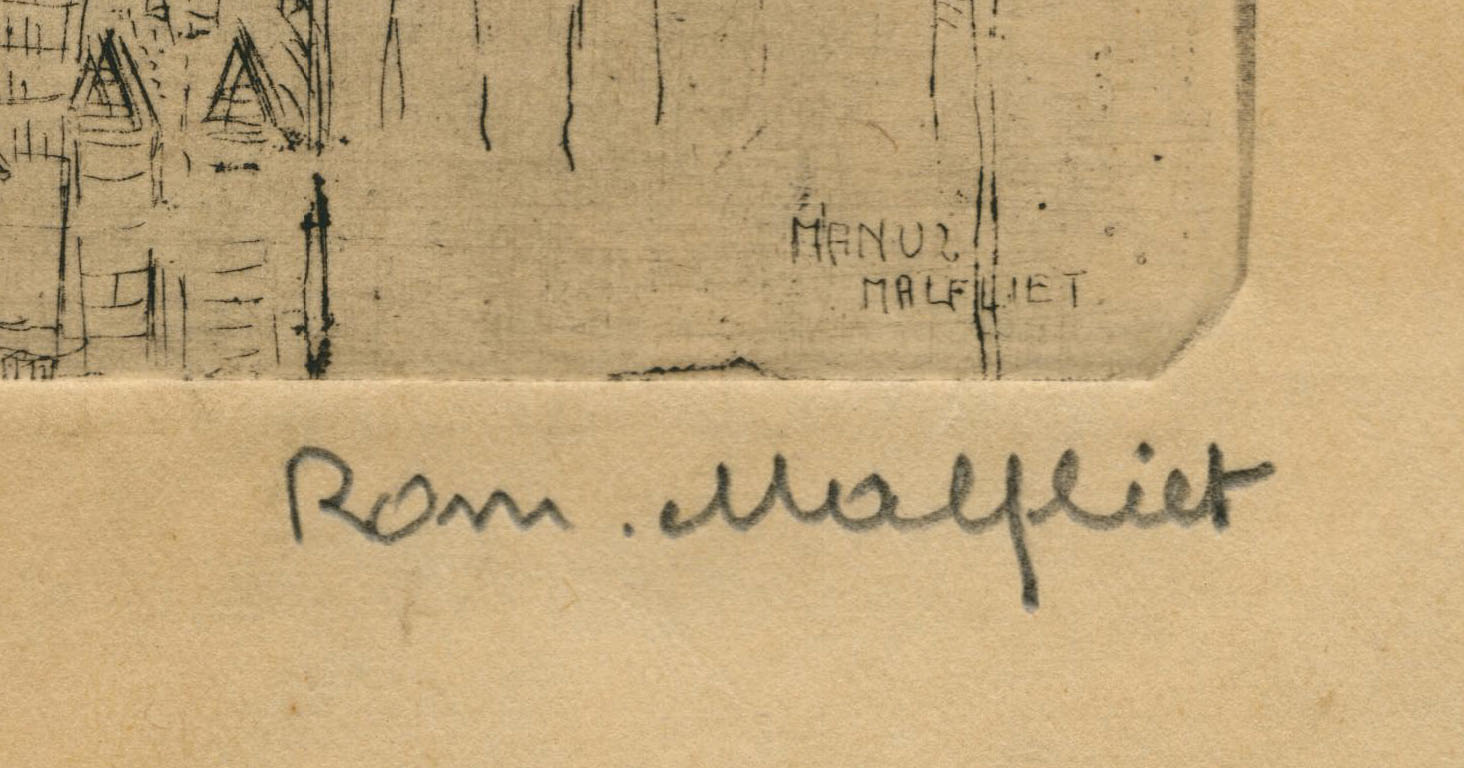 MANUS
MALFLIET
Rom. Malfliet